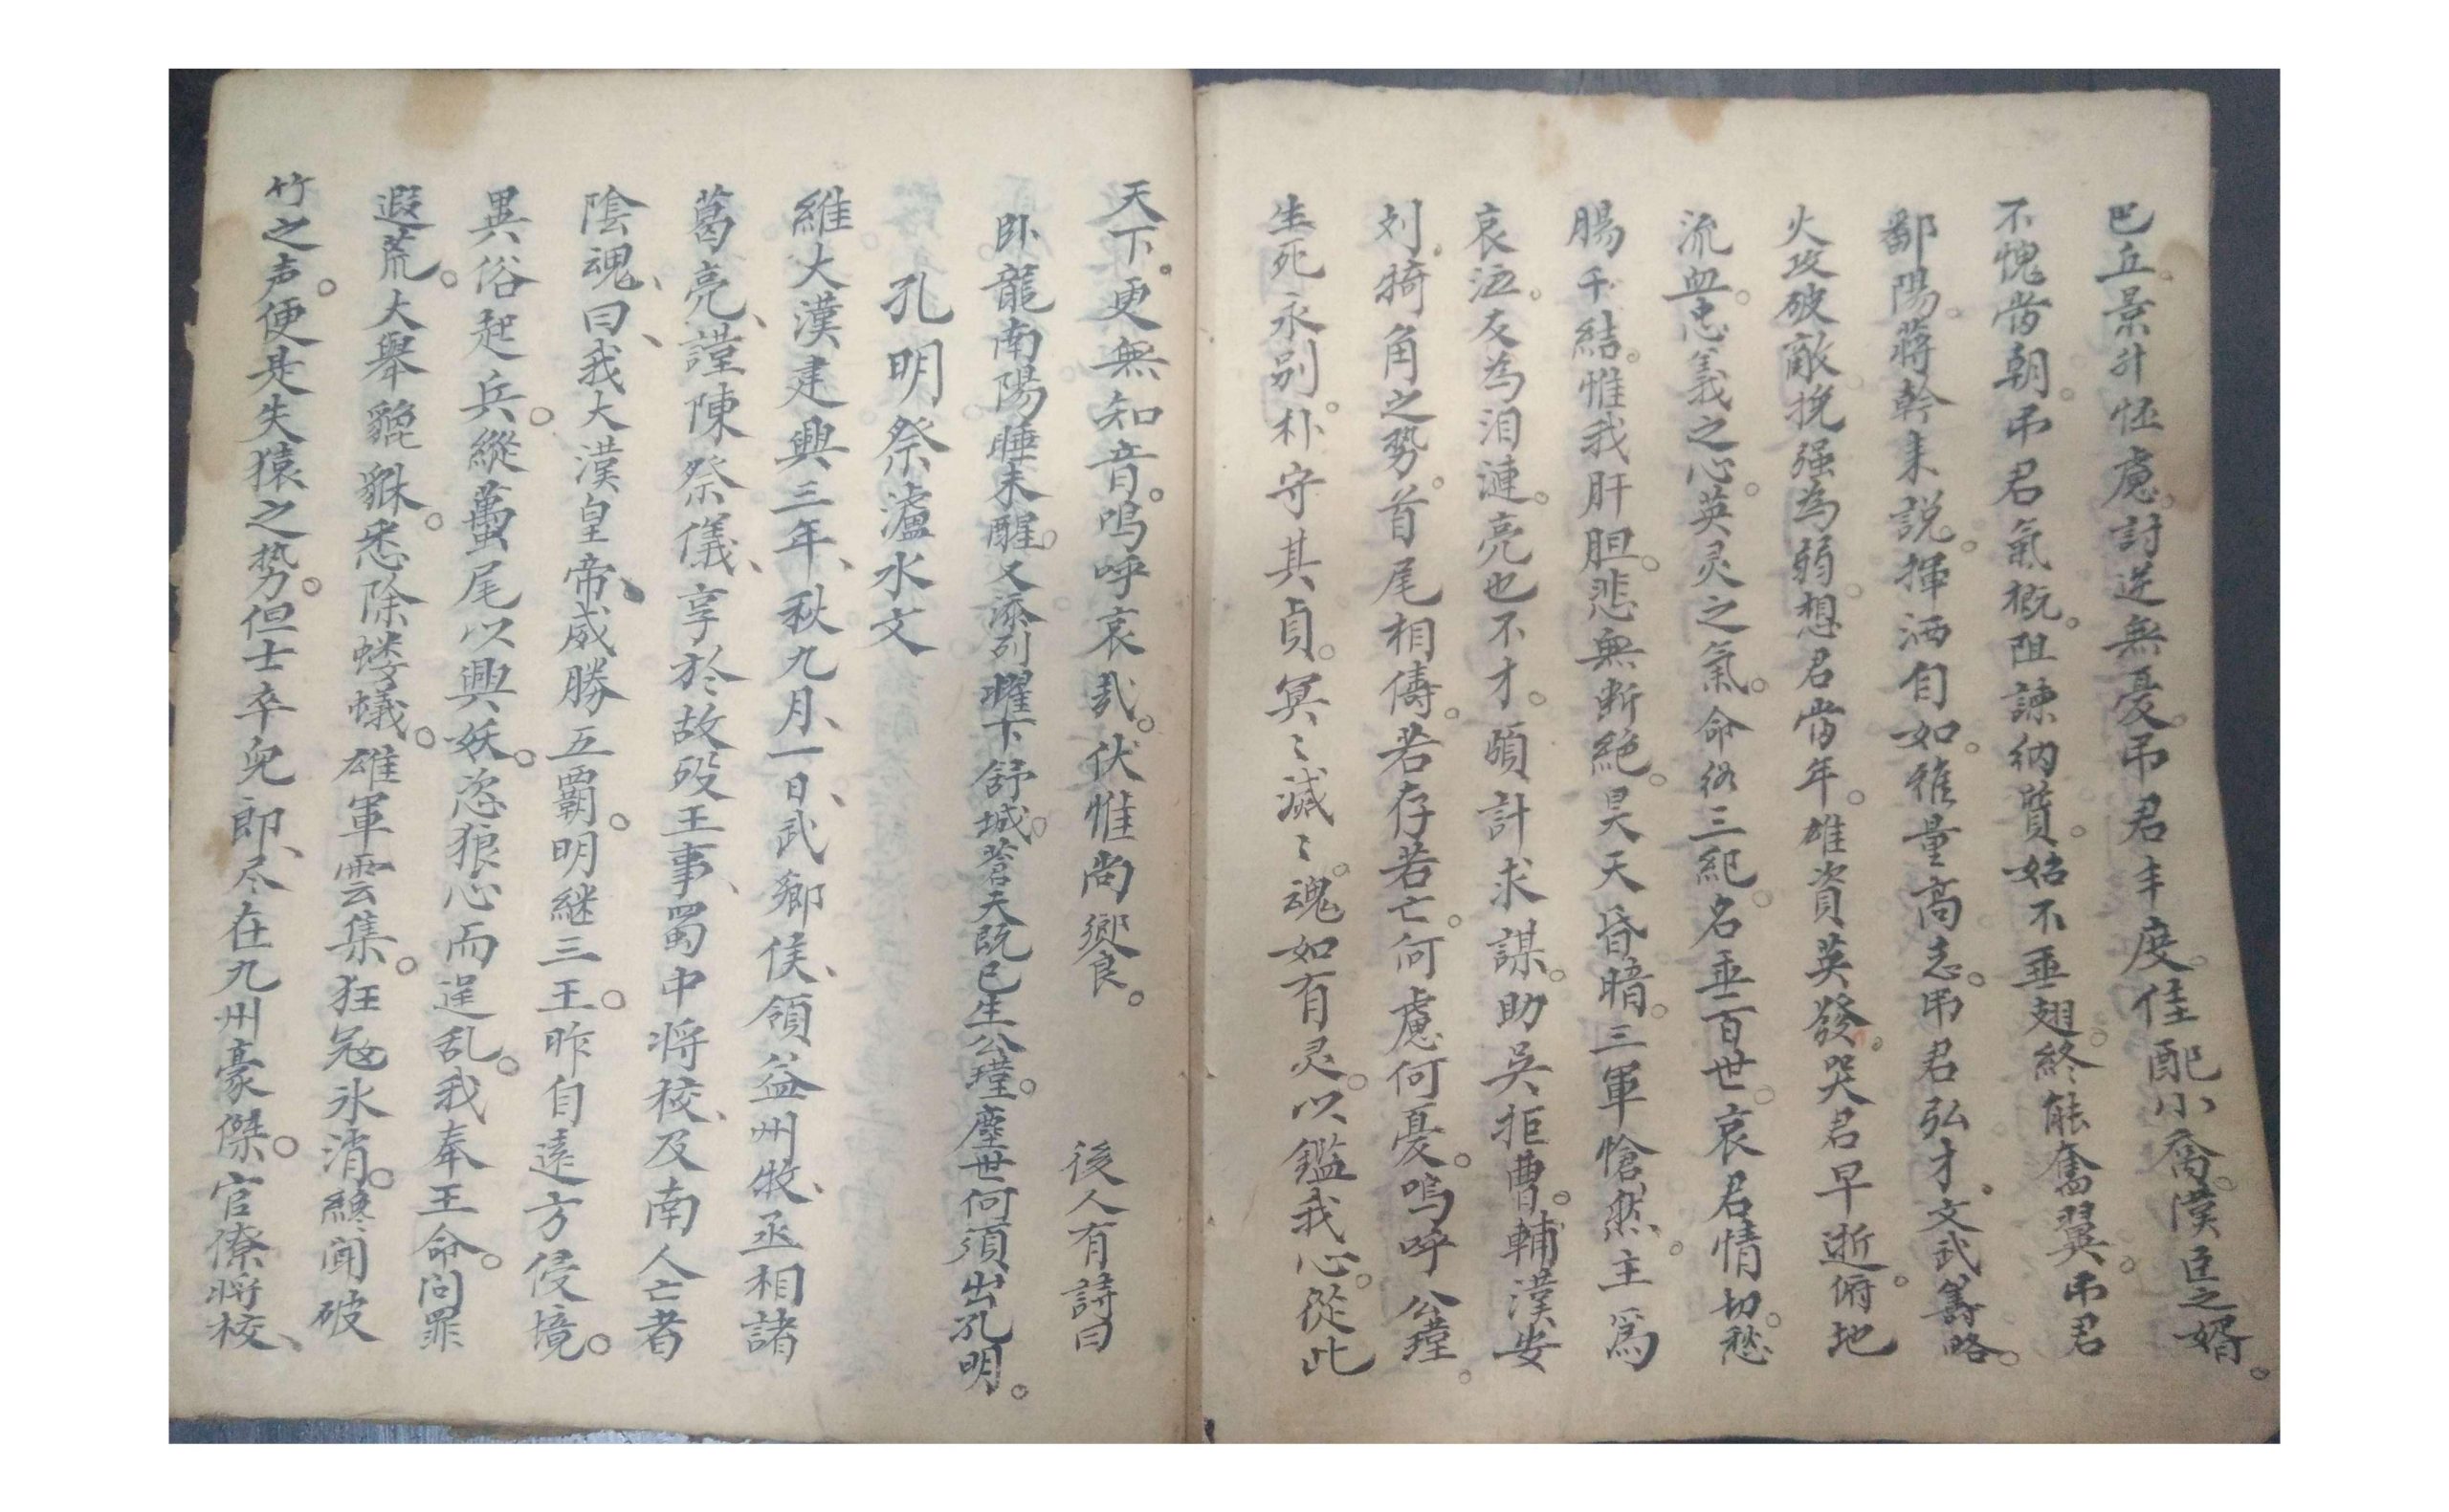 巴丘。景升怔慮。討逆無憂。吊君丰度。佳配小喬。漢臣之婿。
不愧當朝。吊君氣概。阻諫納質。始不垂翅。終能奮翼。吊君
鄱陽。蔣幹来説。揮洒自如。雅量高志。吊君弘才。文武籌略。
火攻破敵。挽强為弱。想君當年。雄資英發。哭君早逝。俯地
流血。忠義之心。英灵之氣。命終三紀。名垂百世。哀君情切。愁
腸千結。惟我肝胆。悲無断絶。昊天昏暗。三軍愴然。主爲
哀泣。友為泪漣。亮也不才。頭計求謀。助吳拒曹。輔漢安
刘。犄角之勢。首尾相儔。若存若亡。何慮何憂。嗚呼公瑾。
生死永别。朴守其貞。冥〻滅〻。魂如有灵。以鑑我心。從此
天下。更無知音。嗚呼哀哉。伏惟尚饗。　後人有詩曰
卧龍南陽睡未醒。又添列曜下舒城。蒼天既已生公瑾。塵世何須出孔明。
孔明祭瀘水文
維大漢建興三年、秋九月、一日、武鄉侯、領益州牧、丞相諸
葛亮、謹陳祭儀、享於故殁王事、蜀中将校、及南人亡者
陰魂、曰、我大漢皇帝、威勝五覇。明継三王。昨自遠方侵境。
異俗起兵。縱蠆尾以興妖。恣狼心而逞乱。我奉王命。问罪
遐荒。大舉貔貅。悉除蝼蟻。雄軍雲集。狂冦氷消。纔闻破
竹之声。便是失猿之勢。但士卒兒郎、尽在九州豪傑。官僚将校、